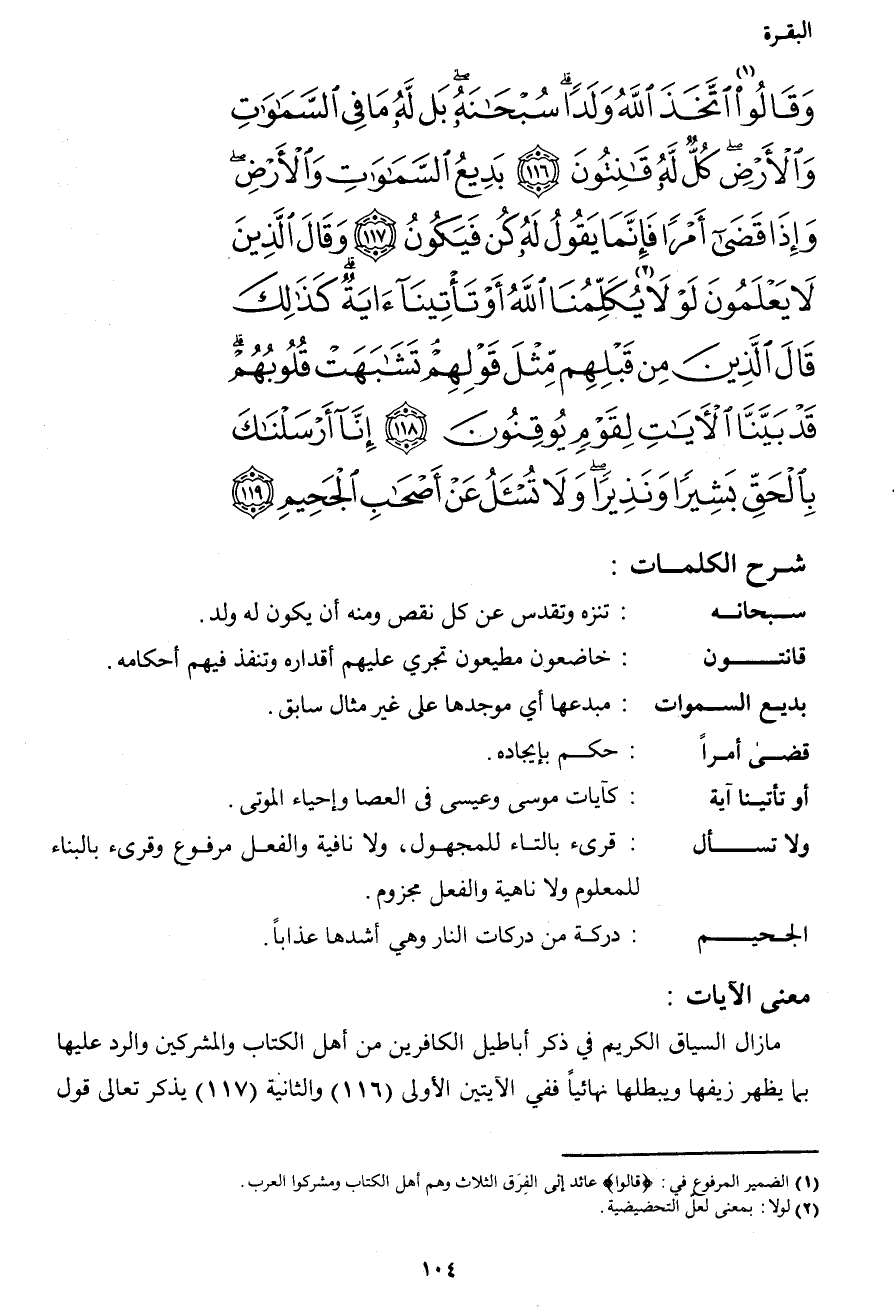 البقرة
وَقَالُوا۟ ٱتَّخَذَ ٱللَّهُ وَلَدًاۗ سُبْحَـٰنَهُۥۖ بَل لَّهُۥ مَا فِى ٱلسَّمَـٰوَٰتِ (١)
وَٱلْأَرْضِۖ كُلٌّ لَّهُۥ قَـٰنِتُونَ ﴿١١٦﴾ بَدِيعُ ٱلسَّمَـٰوَٰتِ وَٱلْأَرْضِۖ
وَإِذَا قَضَىٰٓ أَمْرًا فَإِنَّمَا يَقُولُ لَهُۥ كُن فَيَكُونُ ﴿١١٧﴾ وَقَالَ ٱلَّذِينَ
لَا يَعْلَمُونَ لَوْلَا (٢) يُكَلِّمُنَا ٱللَّهُ أَوْ تَأْتِينَآ ءَايَةٌۗ كَذَٰلِكَ
قَالَ ٱلَّذِينَ مِن قَبْلِهِم مِّثْلَ قَوْلِهِمْۘ تَشَـٰبَهَتْ قُلُوبُهُمْۗ
قَدْ بَيَّنَّا ٱلْـَٔايَـٰتِ لِقَوْمٍ يُوقِنُونَ ﴿١١٨﴾ إِنَّآ أَرْسَلْنَـٰكَ
بِٱلْحَقِّ بَشِيرًا وَنَذِيرًاۖ وَلَا تُسْـَٔلُ عَنْ أَصْحَـٰبِ ٱلْجَحِيمِ ﴿١١٩﴾
شـرح الكلمـات :
سـبحانـه : تنزه وتقدس عن كل نقص ومنه أن يكون له ولد .
قانتـــون : خاضعون مطيعون تجري عليهم أقداره وتنفذ فيهم أحكامه .
بديـع السـموات : مبدعها أي موجدها على غير مثال سابق .
قضـىٰ أمـراً : حكـم بإيجاده .
أو تأتيـنا آية : كآيات موسى وعيسى فى العصا وإحياء الموتى .
ولا تســـأل : قرىء بالتـاء للمجهـول، ولا نافية والفعـل مرفـوع وقرىء بالبناء
للمعلوم ولا ناهية والفعل مجزوم .
الجـحيـــم : دركـة من دركات النار وهي أشدها عذاباً .
معنى الآيات :
مازال السياق الكريم في ذكر أباطيل الكافرين من أهل الكتاب والمشركين والرد عليها
بما يظهر زيفها ويبطلها نهائياً ففي الآيتين الأولى (١١٦) والثانية (١١٧) يذكر تعالى قول
(١) الضمير المرفوع في : ﴿قالوا﴾ عائد إلى الفِرَق الثلاث وهم أهل الكتاب ومشركوا العرب .
(٢) لولا : بمعنى لعلّ التحضيضية .
١٠٤